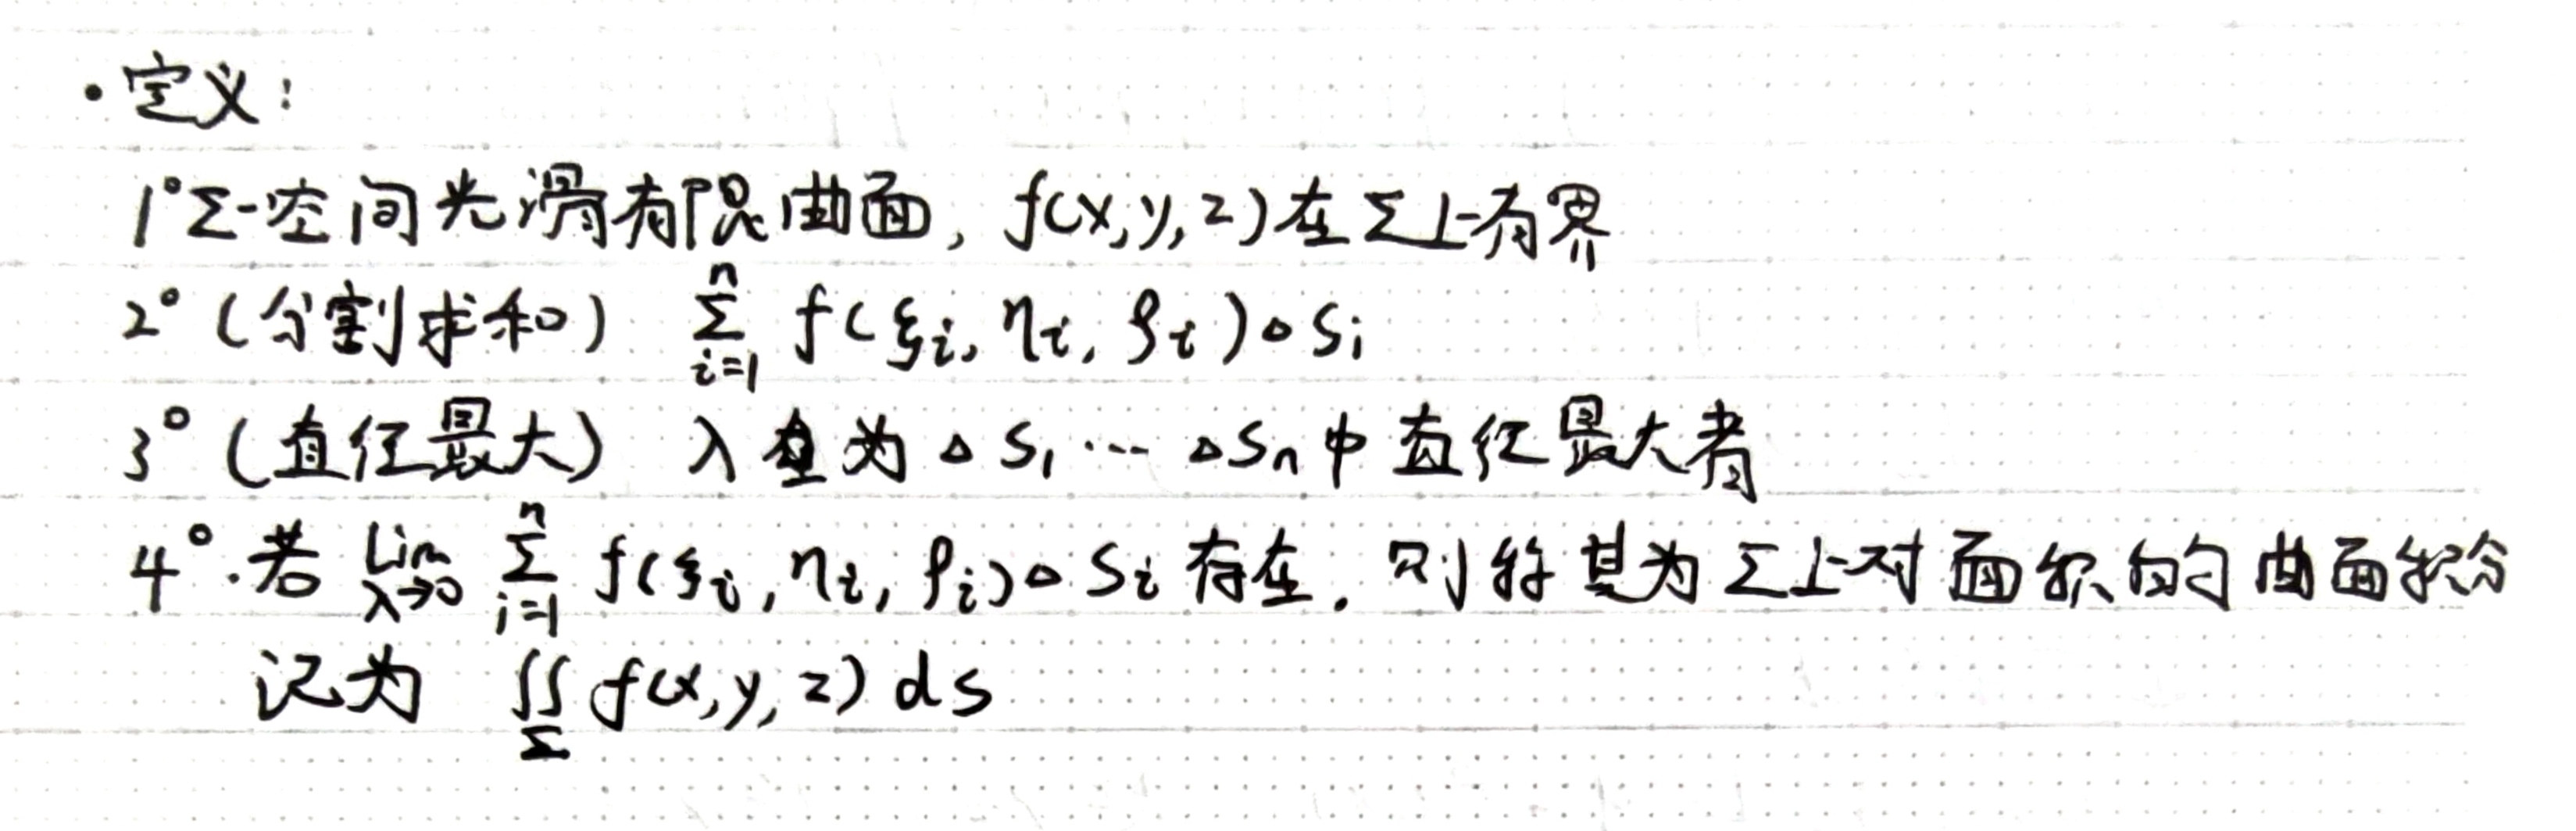 ·定义：
1°Σ-空间光滑有限曲面，f(x,y,z)在Σ上有界
2°(分割求和) $\sum_{i=1}^{n} f(ξ_i, η_i, ρ_i)ΔS_i$
3°(直径最大) λ 为 ΔS_1 ··· ΔS_n 中直径最大者
4°.若 $\lim_{λ→0} \sum_{i=1}^{n} f(ξ_i, η_i, ρ_i)ΔS_i$ 存在，则称其为Σ上对面积的曲面积分
记为 $\iint_{Σ} f(x,y,z) ds$